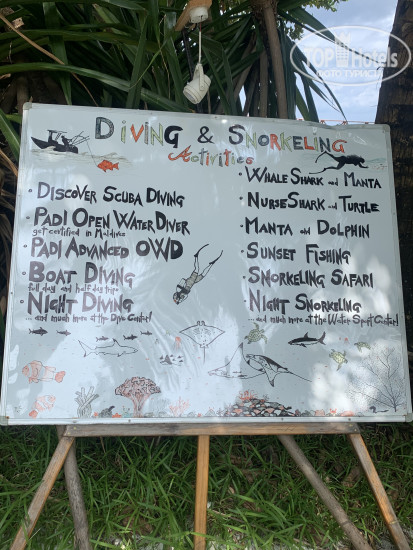 TopHotels
ФОТО ТУРИСТА
DIVING & SNORKELING
Activities
• DISCOVER SCUBA DIVING
• PADI OPEN WATER DIVER
get certified in Maldives
• PADI ADVANCED OWD
• BOAT DIVING
full day and half day trips
• NIGHT DIVING
... and much more at the Dive Center!
• WHALE SHARK and MANTA
• NURSE SHARK and TURTLE
• MANTA and DOLPHIN
• SUNSET FISHING
• SNORKELING SAFARI
• NIGHT SNORKELING
... and much more at the Water Sport Center!